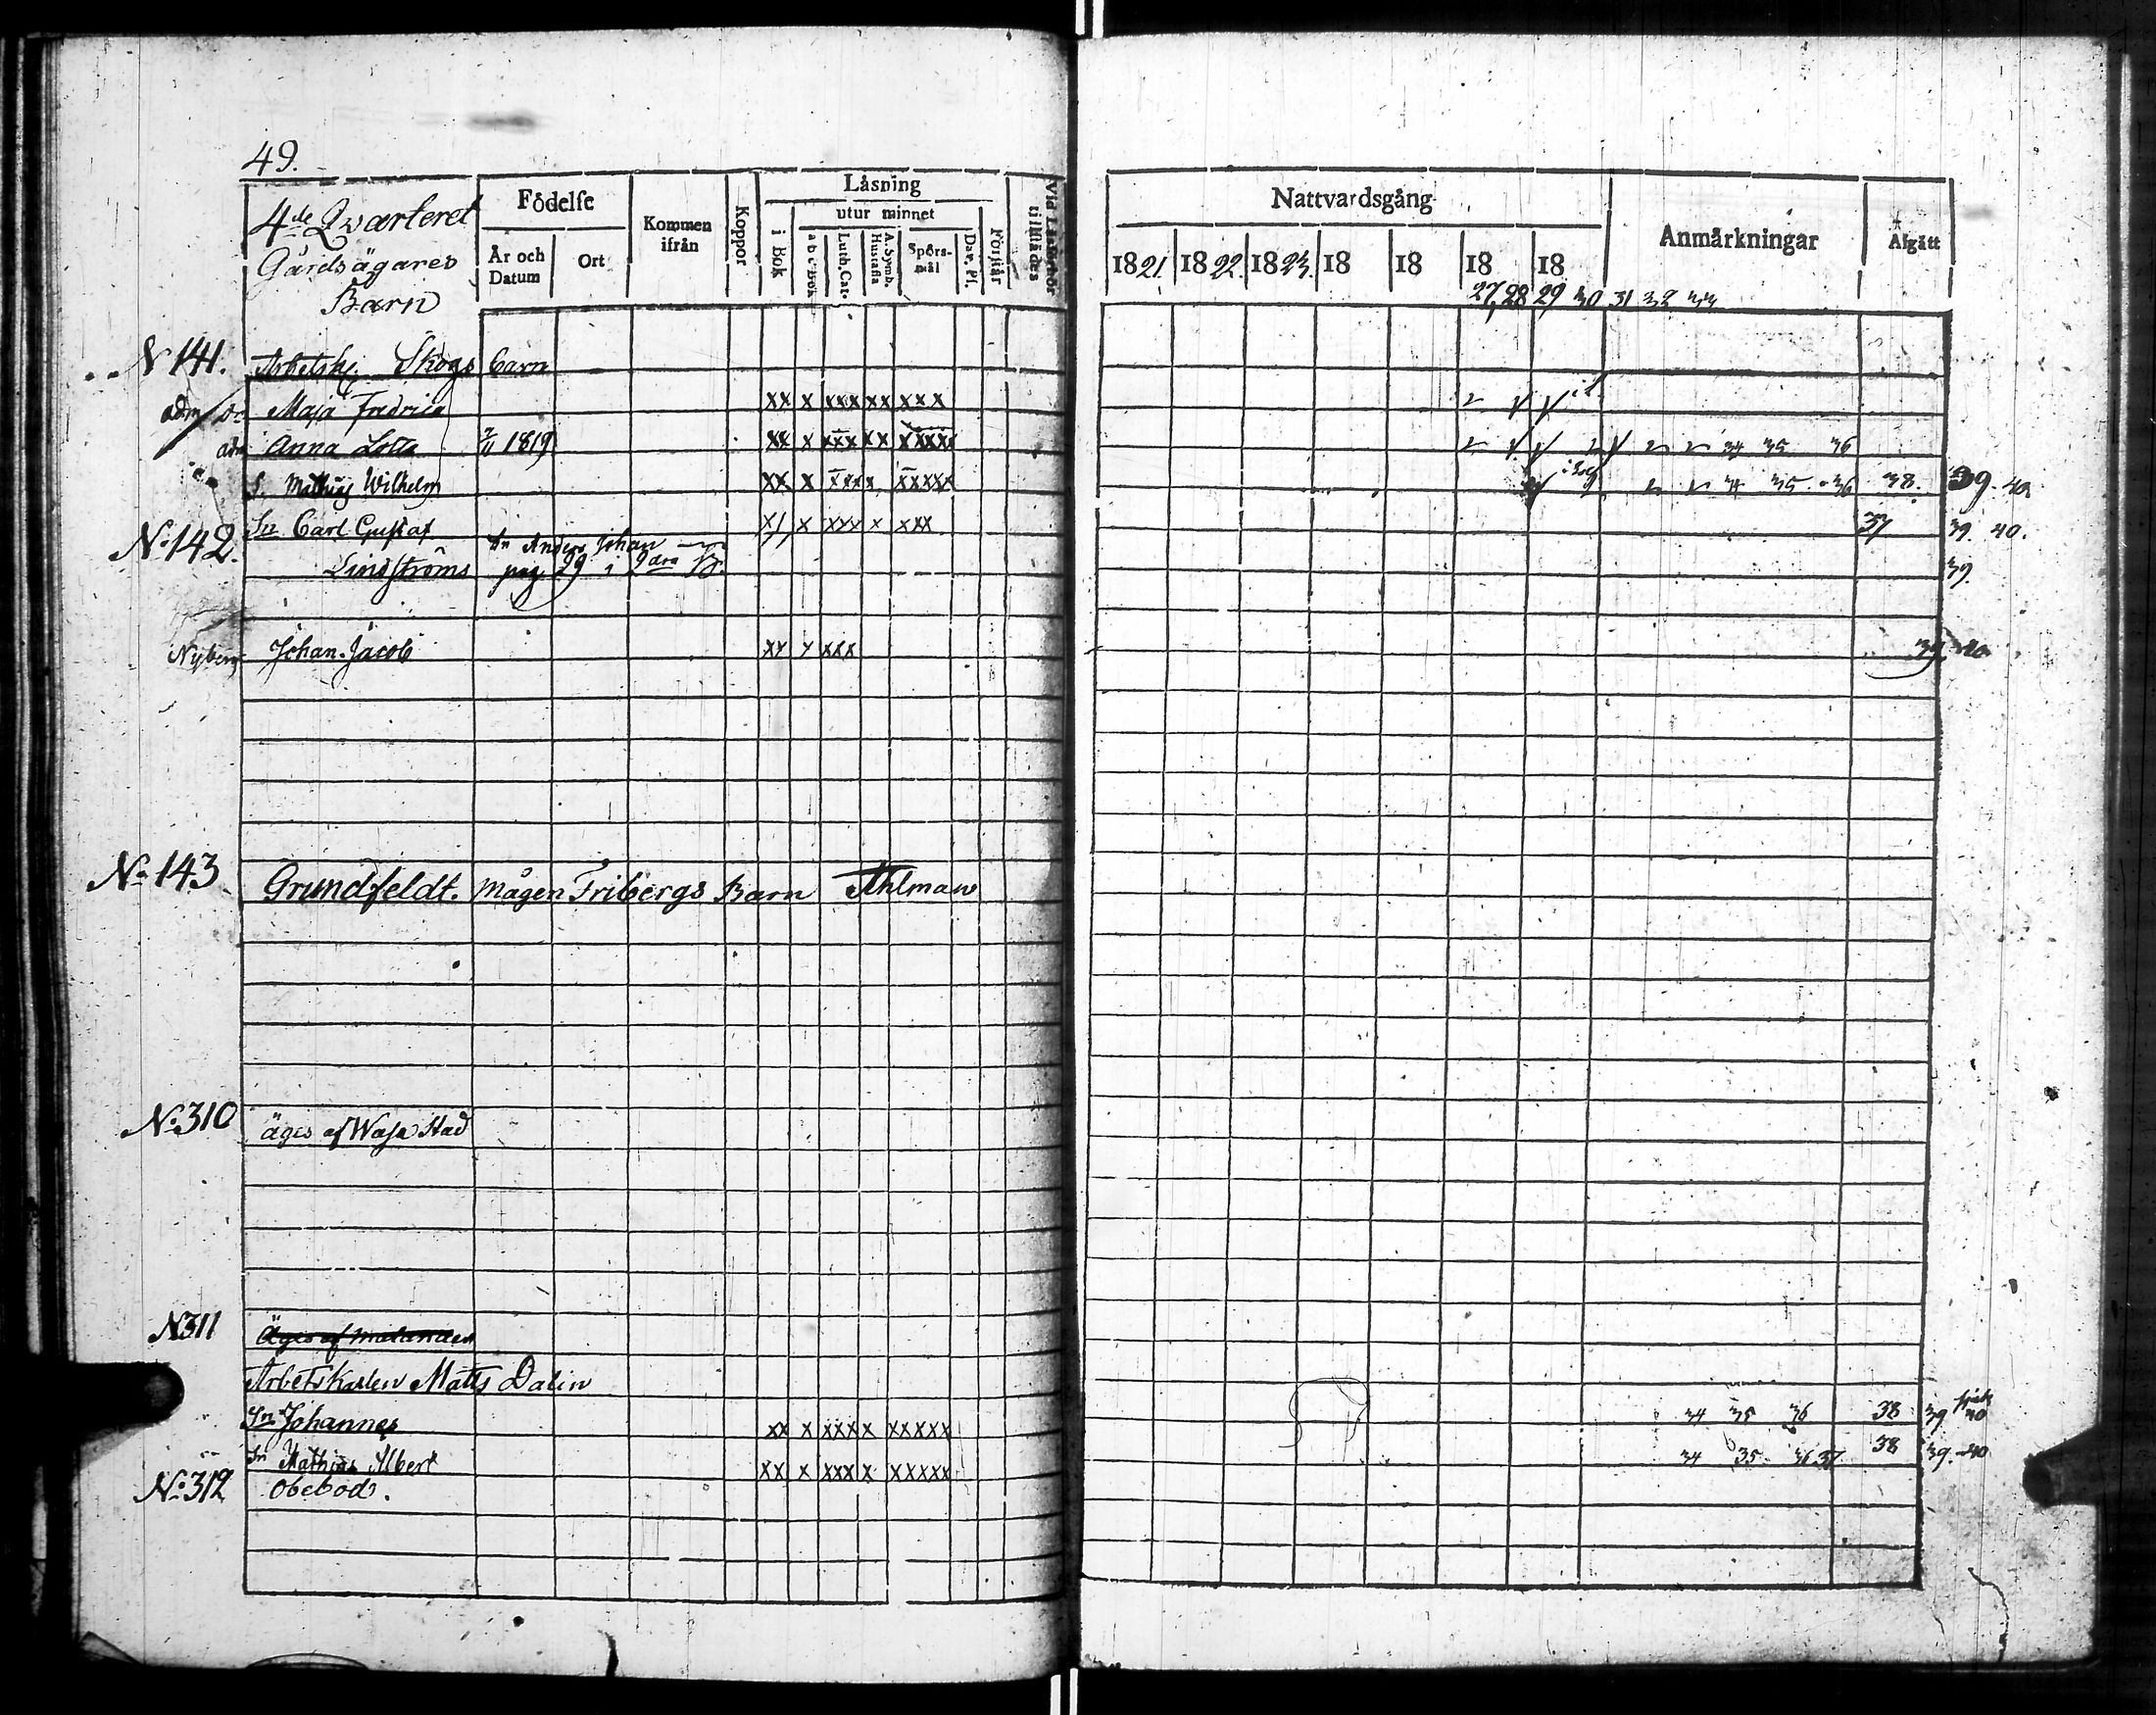 49.
4de Qvarteret
Gårdsägares
Barn
Födelse
År och Datum
Ort
Kommen ifrån
Koppor
Låsning
i Bok
utur minnet
a b c Bok
Luth. Cat.
A. Symb. Hustafla
Spörs-mål
Dav. Ps.
Förstår
Vid Läseförhör tillstädes
Nattvardsgång
1821. 1822. 1823. 18 18 18 18
27, 28 29 30 31 32 33
Anmärkningar
Afgått
N 141. Arbetsk. Skogs barn
adm Maja Fredrica xx x xxx xx xxx
adm Anna Lotta 2/11 1819 xx x xxx xx xxxx 34 35 36
S. Mathias Wilhelm xx x xxxx xxxxx 34 35 36 38. 39. 40
Sn Carl Gustaf x/, x xxx x xxx 37 39 40.
No 142. Lindströms Sn Anders Johan
pag 29 i 2dra 39
Nyberg Johan Jacob xx x xxx 39 40
No 143 Grundfeldt. Mågen Fribergs Barn Ahlman
No 310 äges af Wasa Stad
N 311 Äges af
Arbetskarlen Matts Dalin
Sn Johannes xx x xxxx x xxxxx 34 35 36 38 39 40
Sn Mathias Albert xx x xxx x xxxxx 34 35 36 37 38 39. 40
No 312 Obebod.